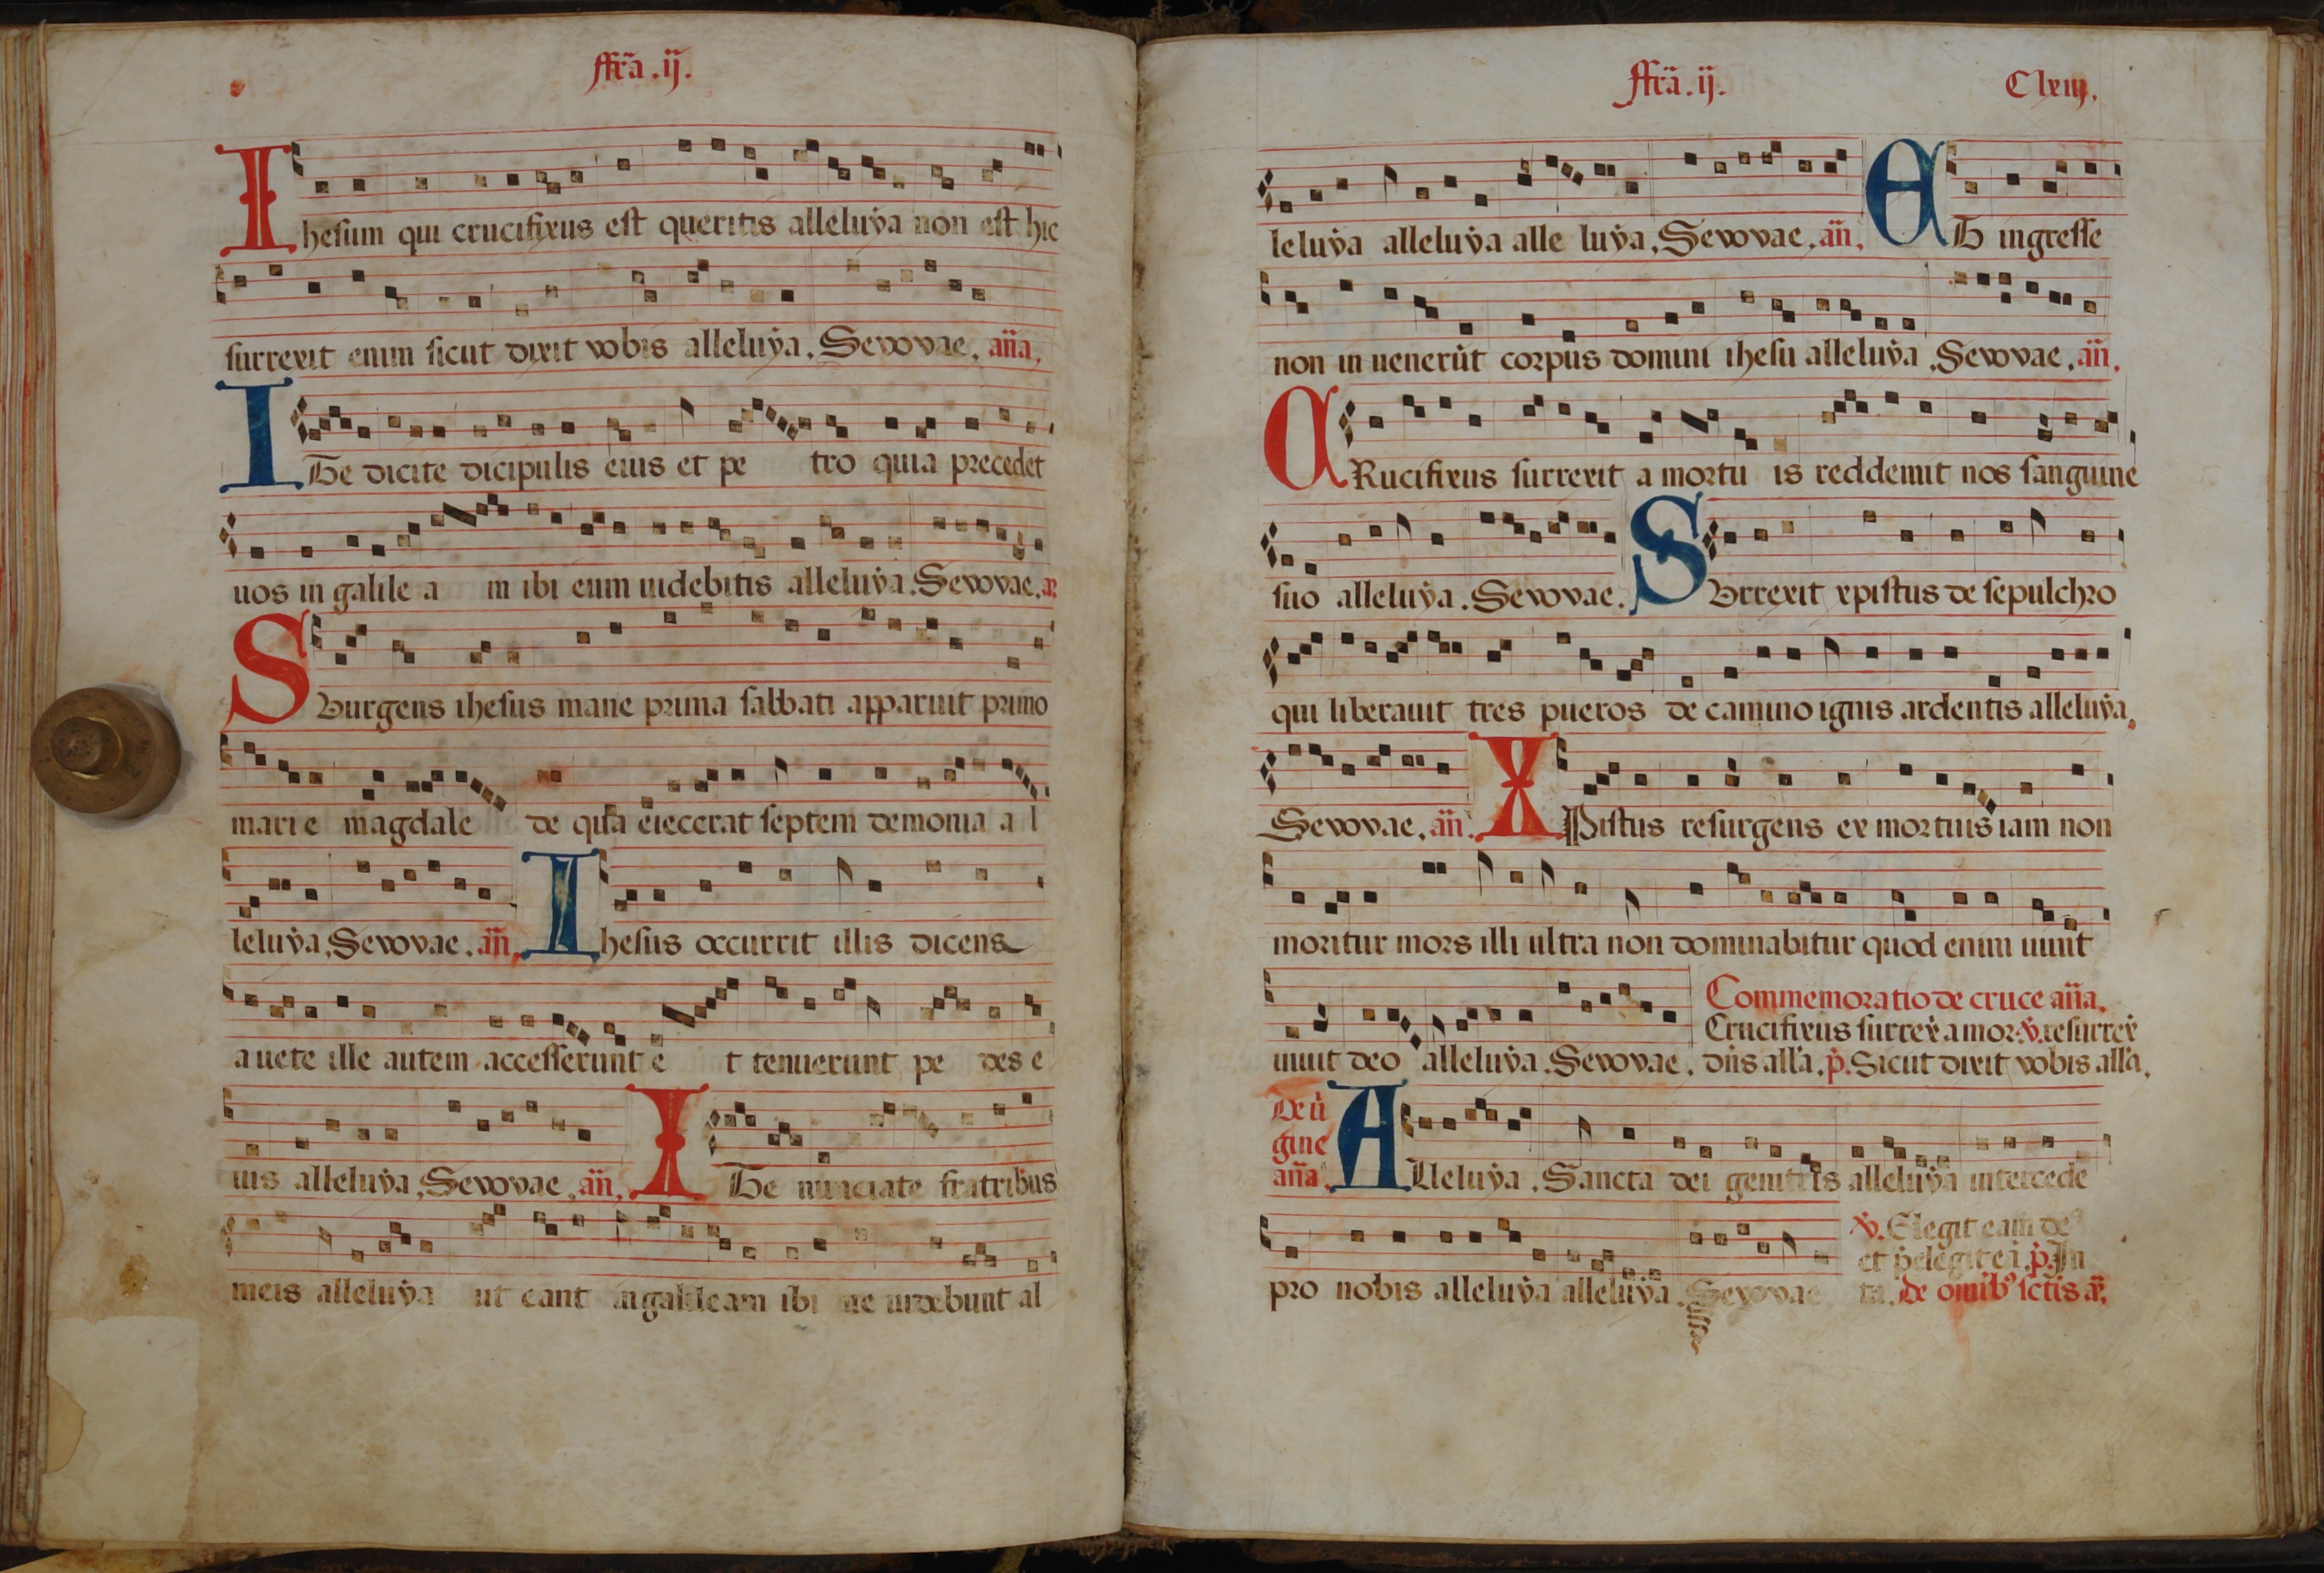 ffra .ij.
Ihesum qui crucifixus est queritis alleluya non est hic
surrexit enim sicut dixit vobis alleluya. Sevovae. aña.
Ite dicite dicipulis eius et pe tro quia precedet
uos in galile a m ibi eum uidebitis alleluya. Sevovae. a
Surgens ihesus mane prima sabbati apparuit primo
marie magdale de qua eiecerat septem demonia a l
leluya. Sevovae. añ. Ihesus occurrit illis dicens
auete ille autem accesserunt e t tenuerunt pe des e
ius alleluya. Sevovae. añ. Ite nunciate fratribus
meis alleluya ut eant in galileam ibi me uidebunt al
ffra .ij. Clxiij.
leluya alleluya alle luya. Sevovae. añ. Et ingresse
non in uenerūt corpus domini ihesu alleluya. Sevovae. añ.
CRucifixus surrexit a mortu is reddemit nos sanguine
suo alleluya. Sevovae. Surrexit xpistus de sepulchro
qui liberauit tres pueros de camino ignis ardentis alleluya.
Sevovae. añ. XPistus resurgens ex mortuis iam non
moritur mors illi ultra non dominabitur quod enim uiuit
Commemoratio de cruce aña.
Crucifixus surrex a mor. v. resurrex
uiuit deo alleluya. Sevovae. dñs all'a. p. Sicut dixit vobis all'a.
De ui
gine
aña. Alleluya. Sancta dei genitris alleluya intercede
v. Elegit eam de
et pelegit ea. p. In
pro nobis alleluya alleluya. Sevovae De omib' sctis a.